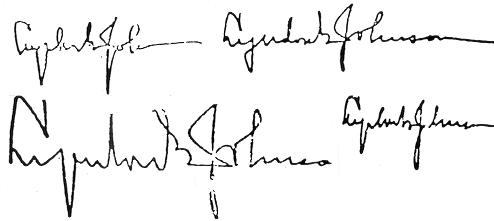 Lyndon B Johnson
Lyndon B Johnson
Lyndon B Johnson
Lyndon B Johnson